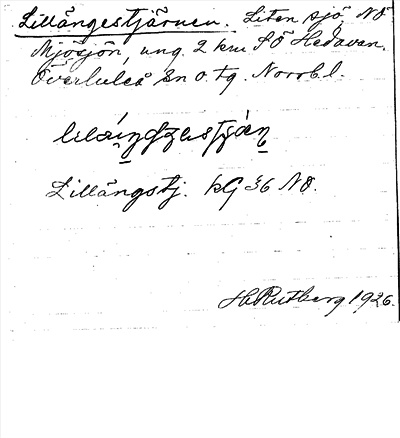 Lillängestjärnen. Liten sjö NÖ
Mjösjön, ung. 2 km SÖ Hedaven.
Överluleå sn o. tg. Norrb. l.
Lillängstj. kG 36 NO.
H. Rutberg 1926.